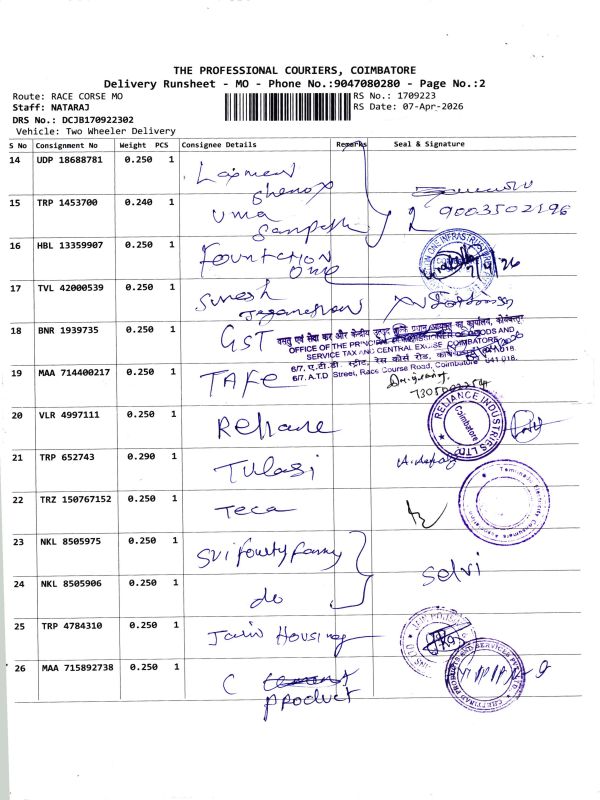 THE PROFESSIONAL COURIERS, COIMBATORE
Delivery Runsheet - MO - Phone No.:9047080280 - Page No.:2
Route: RACE CORSE MO
RS No.: 1709223
Staff: NATARAJ
RS Date: 07-Apr-2026
DRS No.: DCJB170922302
Vehicle: Two Wheeler Delivery
S No Consignment No Weight PCS Consignee Details Remarks Seal & Signature
14 UDP 18688781 0.250 1 Laxman
15 TRP 1453700 0.240 1 Uma
9003502196
16 HBL 13359907 0.250 1 Fountation
One
7/4/26
17 TVL 42000539 0.250 1 Suresh
18 BNR 1939735 0.250 1 GST
OFFICE OF THE PRINCIPAL COMMISSIONER OF GOODS AND
SERVICE TAX AND CENTRAL EXCISE
6/7. A.T.D. Street, Race Course Road, Coimbatore 641 018.
19 MAA 714400217 0.250 1 TAFE
20 VLR 4997111 0.250 1 Reliane
RELIANCE INDUSTRIES LTD.
Coimbatore
21 TRP 652743 0.290 1 Tulasi
22 TRZ 150767152 0.250 1 Teca
23 NKL 8505975 0.250 1 Sri
Selvi
24 NKL 8505906 0.250 1 do
25 TRP 4784310 0.250 1 Jain Housing
26 MAA 715892738 0.250 1 C
product